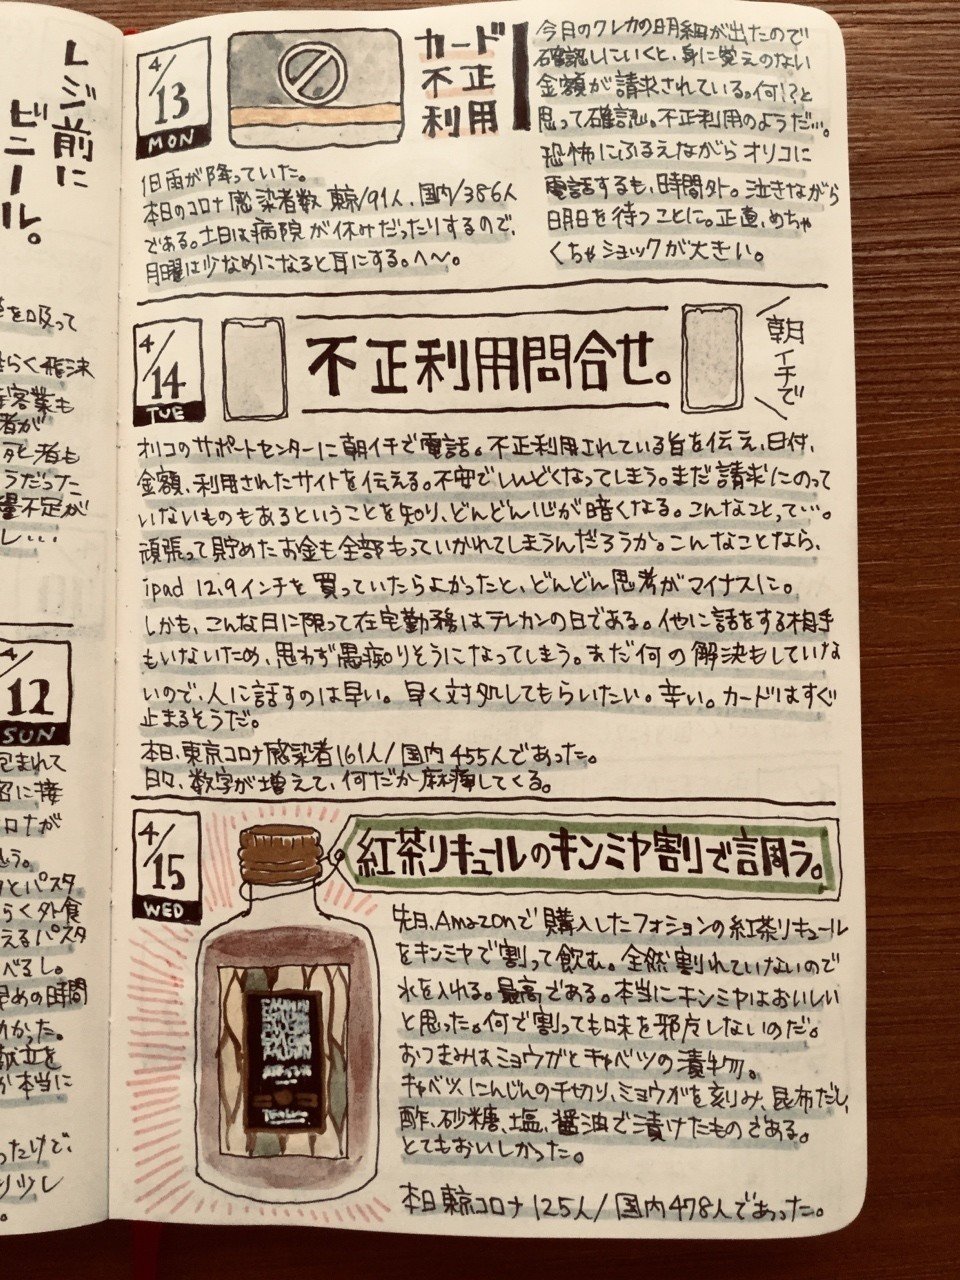 レジ前に
ビニール。
を吸って
らく飛沫
客業も
者が
死者も
うだった
量不足が
し…
4/12
SUN
包まれて
沼に接
ロナが
う。
とパスタ
らく外食
えるパスタ
べるし。
早めの時間
かった。
献立を
が本当に
ったけど、
り少し
4/13
MON
カード
不正
利用
今月のクレカの明細が出たので
確認しにいくと、身に覚えのない
金額が請求されている。何!?と
思って確認。不正利用のようだ…。
恐怖にふるえながらオリコに
電話するも、時間外。泣きながら
明日を待つことに。正直、めちゃ
くちゃショックが大きい。
1日雨が降っていた。
本日のコロナ感染者数 東京/91人、国内/386人
である。土日は病院が休みだったりするので、
月曜は少なめになると耳にする。へ〜。
4/14
TUE
不正利用問合せ。
朝イチで
オリコのサポートセンターに朝イチで電話。不正利用されている旨を伝え、日付、
金額、利用されたサイトを伝える。不安でしんどくなってしまう。まだ請求にのって
いないものもあるということを知り、どんどん心が暗くなる。こんなことって…。
頑張って貯めたお金も全部もっていかれてしまうんだろうか。こんなことなら、
ipad 12.9インチを買っていたらよかったと、どんどん思考がマイナスに。
しかも、こんな日に限って在宅勤務はテレカンの日である。他に話をする相手
もいないため、思わず愚痴りそうになってしまう。まだ何の解決もしていな
いので、人に話すのは早い。早く対処してもらいたい。辛い。カードはすぐ
止まるそうだ。
本日、東京コロナ感染者161人/国内455人であった。
日々、数字が増えて、何だか麻痺してくる。
4/15
WED
紅茶リキュールのキンミヤ割りで調う。
先日、Amazonで購入したフォションの紅茶リキュール
をキンミヤで割って飲む。全然割れていないので
氷を入れる。最高である。本当にキンミヤはおいしい
と思った。何で割っても味を邪魔しないのだ。
おつまみはミョウガとキャベツの漬物。
キャベツ、にんじんの千切り、ミョウガを刻み、昆布だし、
酢、砂糖、塩、醤油で漬けたものである。
とてもおいしかった。
本日東京コロナ125人/国内478人であった。